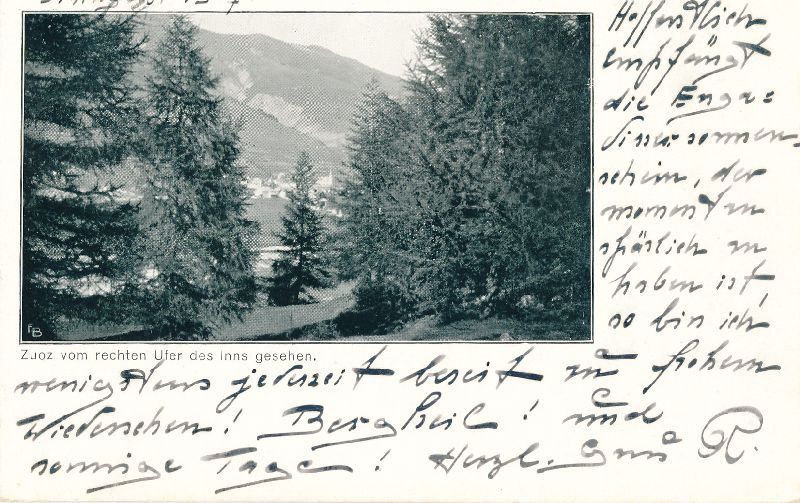 Hoffentlich
empfängt
die Enga=
dinersonnen-
schein, der
momentan
spärlich zu
haben ist,
so bin ich
FB
Zuoz vom rechten Ufer des Inns gesehen.
wenigstens jederzeit bereit zu frohem
Wiedersehen! Bergheil! und
sonnige Tage! Herzl. Gruss R.